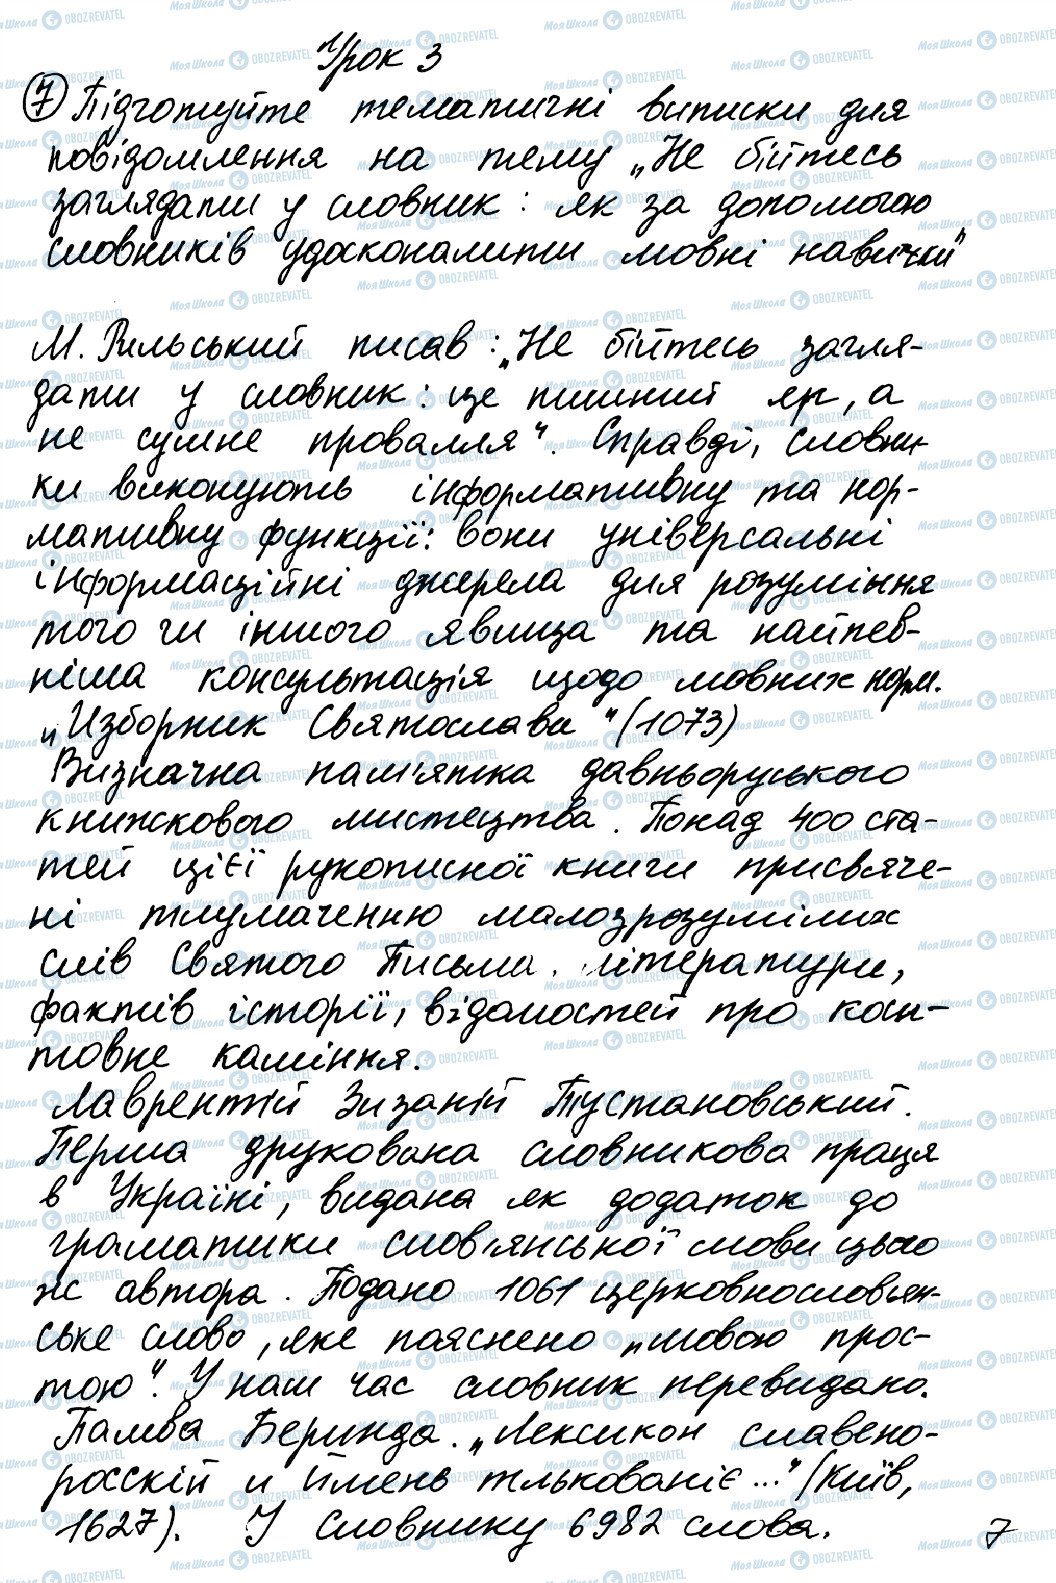 Урок 3
7 Підготуйте тематичні виписки для
повідомлення на тему „Не бійтесь
заглядати у словник: як за допомогою
словників удосконалити мовні навички"
М. Рильський писав: „Не бійтесь загля-
дати у словник: це пишний яр, а
не сумне провалля". Справді, словни-
ки виконують інформативну та нор-
мативну функції: вони універсальні
інформаційні джерела для розуміння
того чи іншого явища та найпев-
ніша консультація щодо мовних норм.
„Изборник Святослава" (1073)
Визначна пам'ятка давньоруського
книжкового мистецтва. Понад 400 ста-
тей цієї рукописної книги присвяче-
ні тлумаченню малозрозумілих
слів Святого Письма. літератури,
фактів історії, відомостей про кош-
товне каміння.
Лаврентій Зизаній Тустановський.
Перша друкована словникова праця
в Україні, видана як додаток до
граматики слов'янської мови цього
ж автора. Подано 1061 церковнослов'ян-
ське слово, яке пояснено „мовою прос-
тою". У наш час словник перевидано.
Памва Беринда. „Лексикон славено-
росскій и імень тлькованіє..." (Київ,
1627). У Словнику 6982 слова.
7